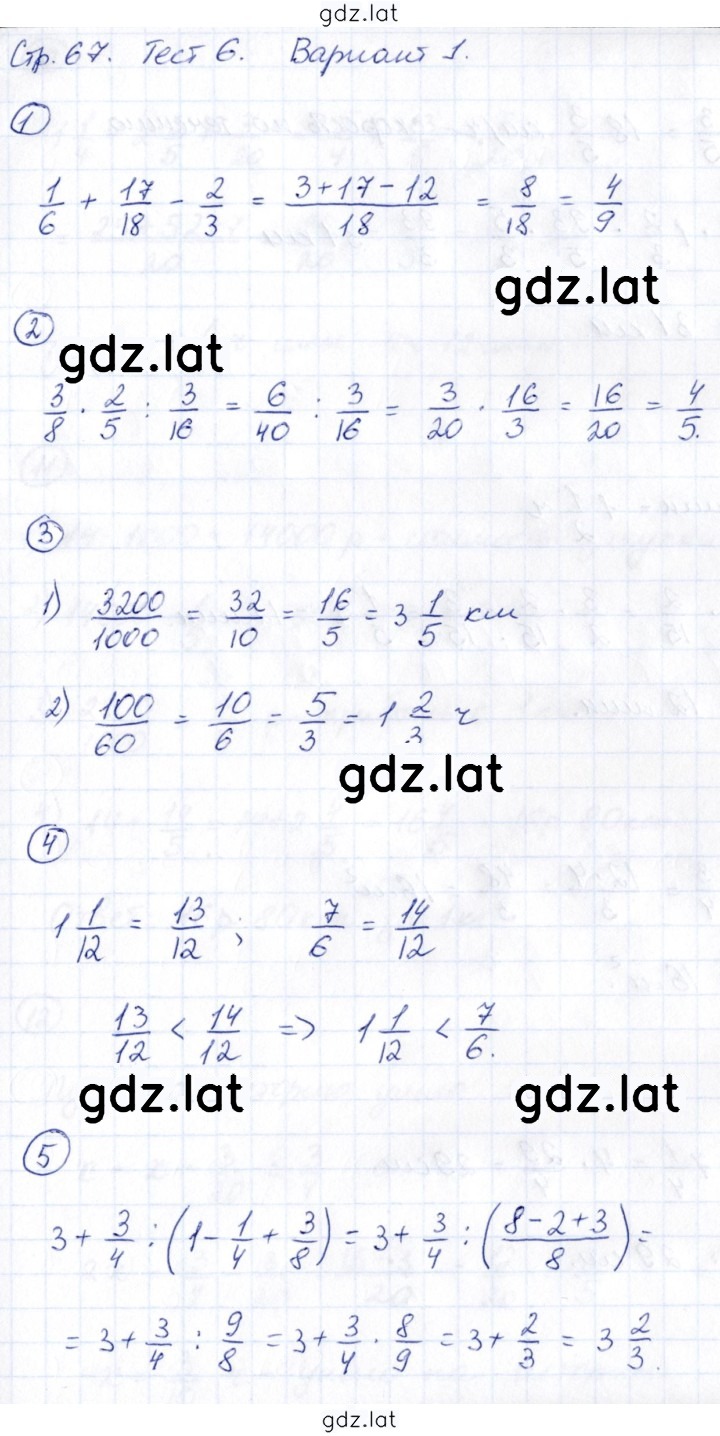 gdz.lat
Стр. 67. Тест 6. Вариант 1.
1
1/6 + 17/18 - 2/3 = (3+17-12)/18 = 8/18 = 4/9.
gdz.lat
2
gdz.lat
3/8 · 2/5 : 3/16 = 6/40 : 3/16 = 3/20 · 16/3 = 16/20 = 4/5.
3
1) 3200/1000 = 32/10 = 16/5 = 3 1/5 км
2) 100/60 = 10/6 = 5/3 = 1 2/3 ч
gdz.lat
4
1 1/12 = 13/12 ; 7/6 = 14/12
13/12 < 14/12 => 1 1/12 < 7/6.
gdz.lat gdz.lat
5
3 + 3/4 : (1 - 1/4 + 3/8) = 3 + 3/4 : ((8-2+3)/8) =
= 3 + 3/4 : 9/8 = 3 + 3/4 · 8/9 = 3 + 2/3 = 3 2/3.
gdz.lat